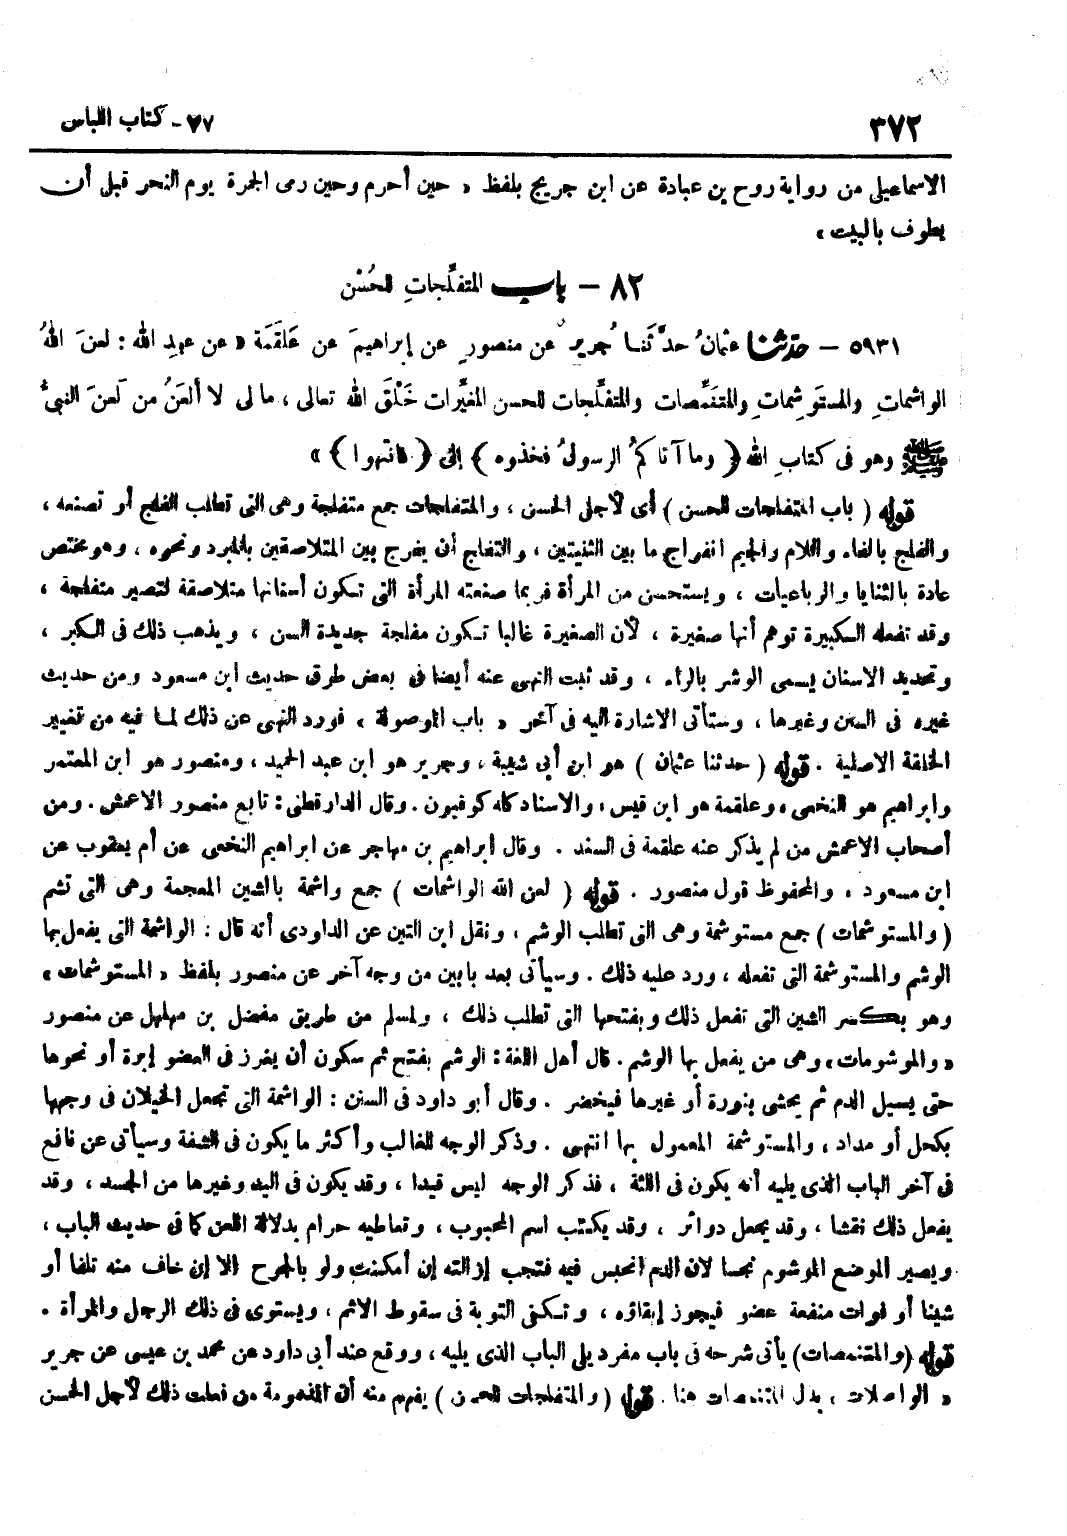 ٣٧٢
٧٧ - كتاب اللباس
الاسماعيلى من رواية روح بن عبادة عن ابن جريج بلفظ « حين أحرم وحين رمى الجمرة يوم النحر قبل أن
يطوف بالبيت »
٨٢ – باب المتفلِّجاتِ للحُسْن
٥٩٣١ – حدّثنا عثمانُ حدَّثَنا جُريرٌ عن منصورٍ عن إبراهيمَ عن عَلقَمَة « عن عبدِ الله : لعنَ اللهُ
الواشماتِ والمستَوشِماتِ والمتَنَمِّصات والمتفلِّجات للحسن المغيِّرات خَلْقَ الله تعالى ، ما لى لا ألعَنُ من لَعنَ النبىُّ
ﷺ وهو فى كتابِ الله ﴿ وما آتاكمُ الرسولُ فخذوه ﴾ إلى ﴿ فانتهوا ﴾ »
قوله ( باب المتفلجات للحسن ) أى لأجل الحسن ، والمتفلجات جمع متفلجة وهى التى تطلب الفلج أو تصنعه ،
والفلج بالفاء واللام والجيم انفراج ما بين الثنيتين ، والتفلج أن يفرج بين المتلاصقين بالمبرد ونحوه ، وهو مختص
عادة بالثنايا والرباعيات ، ويستحسن من المرأة فربما صنعته المرأة التى تكون أسنانها متلاصقة لتصير متفلجة ،
وقد تفعله الكبيرة توهم أنها صغيرة ، لأن الصغيرة غالبا تكون مفلجة جديدة السن ، ويذهب ذلك فى الكبر ،
وتحديد الاسنان يسمى الوشر بالراء ، وقد ثبت النهى عنه أيضا فى بعض طرق حديث ابن مسعود ومن حديث
غيره فى السنن وغيرها ، وستأتى الاشارة اليه فى آخر « باب الموصولة » فورد النهى عن ذلك لما فيه من تغيير
الخلقة الاصلية . قوله ( حدثنا عثمان ) هو ابن أبى شيبة ، وجرير هو ابن عبد الحميد ، ومنصور هو ابن المعتمر
وابراهيم هو النخعى ، وعلقمة هو ابن قيس ، والاسناد كله كوفيون . وقال الدارقطنى : تابع منصور الاعمش . ومن
أصحاب الاعمش من لم يذكر عنه علقمة فى السند . وقال ابراهيم بن مهاجر عن ابراهيم النخعى عن أم يعقوب عن
ابن مسعود ، والمحفوظ قول منصور . قوله ( لعن الله الواشمات ) جمع واشمة بالشين المعجمة وهى التى تشم
( والمستوشمات ) جمع مستوشمة وهى التى تطلب الوشم ، ونقل ابن التين عن الداودى أنه قال : الواشمة التى يفعل بها
الوشم والمستوشمة التى تفعله ، ورد عليه ذلك . وسيأتى بعد بابين من وجه آخر عن منصور بلفظ « المستوشمات »
وهو بكسر الشين التى تفعل ذلك وبفتحها التى تطلب ذلك ، ولمسلم من طريق مفضل بن مهلهل عن منصور
« والموشومات » وهى من يفعل بها الوشم . قال أهل اللغة : الوشم بفتح ثم سكون أن يغرز فى العضو إبرة أو نحوها
حتى يسيل الدم ثم يحشى بنورة أو غيرها فيخضر . وقال أبو داود فى السنن : الواشمة التى تجعل الخيلان فى وجهها
بكحل أو مداد ، والمستوشمة المعمول بها انتهى . وذكر الوجه للغالب وأكثر ما يكون فى الشفة وسيأتى عن نافع
فى آخر الباب الذى يليه أنه يكون فى اللثة ، فذكر الوجه ليس قيدا ، وقد يكون فى اليد وغيرها من الجسد ، وقد
يفعل ذلك نقشا ، وقد يجعل دوائر ، وقد يكتب اسم المحبوب ، وتعاطيه حرام بدلالة اللعن كما فى حديث الباب ،
ويصير الموضع الموشوم نجسا لان الدم انحبس فيه فتجب إزالته إن أمكنت ولو بالجرح الا إن خاف منه تلفا أو
شينا أو فوات منفعة عضو فيجوز إبقاؤه ، وتكفى التوبة فى سقوط الاثم ، ويستوى فى ذلك الرجل والمرأة .
قوله ( والمتنمصات ) يأتى شرحه فى باب مفرد يلى الباب الذى يليه ، ووقع عند أبى داود عن محمد بن عيسى عن جرير
« الواصلات ، بدل المتنمصات هنا . قوله ( والمتفلجات للحسن ) يفهم منه أن المذمومة من فعلت ذلك لأجل الحسن